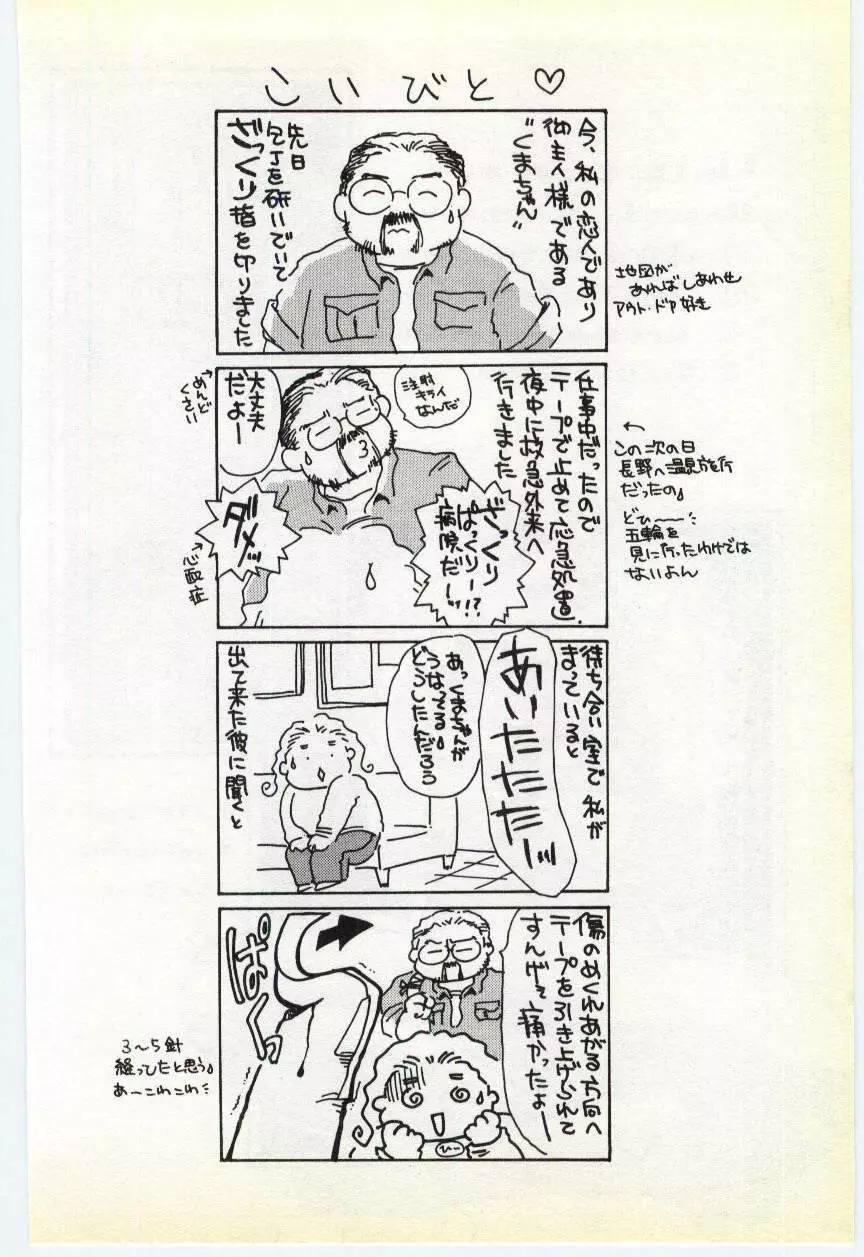 こいびと♡
今、私の恋人であり
御主人様である
“くまちゃん”
先日
包丁を研いでいて
ざっくり指を切りました
地図が
あればしあわせ
アウト・ドア好き
仕事中だったので
テープで止めて応急処置。
夜中に救急外来へ
行きました
注射
キライ
なんだ
大丈夫
だよー
←めんど
くさい
ざっくり
ぱっくりー!?
病院だーッ
ダメッ
←心配症
←
この次の日
長野へ温泉旅行
だったの。
どひ〜〜
五輪を
見に行ったわけでは
ないよん
待ち合い室で私が
まっていると
あいだだだーッ
あっくまちゃんが
うなってる。
どうしたんだろう
出て来た彼に聞くと
傷のめくれあがる方向へ
テープを引き上げられて
すんげェ痛かったよー
ぱくっ
ひー
3〜5針
縫ってたと思う。
あーこわこわ